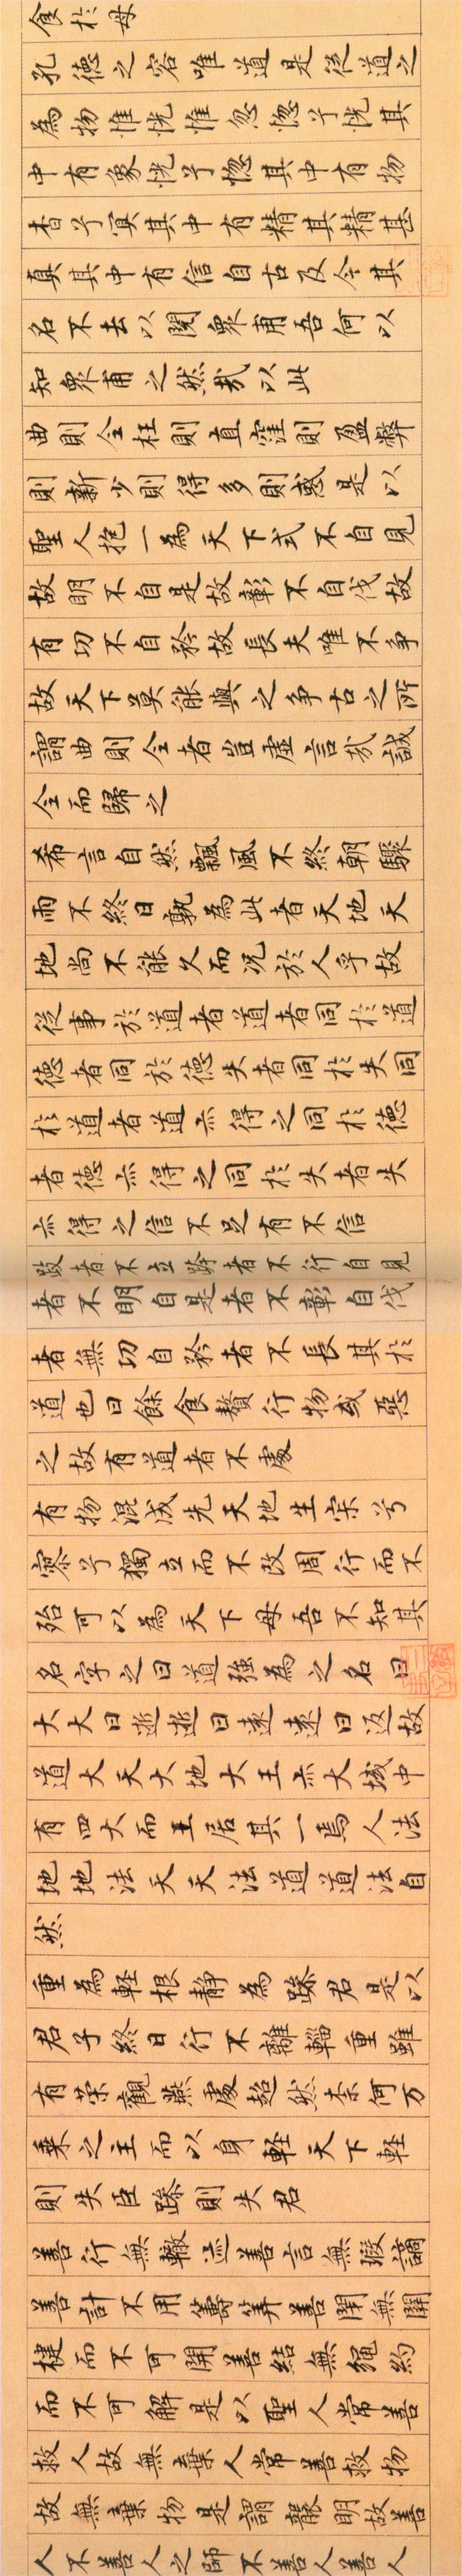 食於母
孔德之容唯道是從道之
為物惟恍惟忽惚兮恍其
中有象恍兮惚其中有物
杳兮冥其中有精其精甚
真其中有信自古及今其
名不去以閱衆甫吾何以
知衆甫之然哉以此
曲則全枉則直窪則盈弊
則新少則得多則惑是以
聖人抱一為天下式不自見
故明不自是故彰不自伐故
有功不自矜故長夫唯不爭
故天下莫能與之爭古之所
謂曲則全者豈虛言哉誠
全而歸之
希言自然飄風不終朝驟
雨不終日孰為此者天地天
地尚不能久而況於人乎故
從事於道者道者同於道
德者同於德失者同於失同
於道者道亦得之同於德
者德亦得之同於失者失
亦得之信不足有不信
跂者不立跨者不行自見
者不明自是者不彰自伐
者無功自矜者不長其於
道也曰餘食贅行物或惡
之故有道者不處
有物混成先天地生寂兮
寥兮獨立而不改周行而不
殆可以為天下母吾不知其
名字之曰道強為之名曰
大大曰逝逝曰遠遠曰返故
道大天大地大王亦大域中
有四大而王居其一焉人法
地地法天天法道道法自
然
重為軽根靜為躁君是以
君子終日行不離輜重雖
有榮觀燕處超然柰何万
乗之主而以身軽天下軽
則失臣躁則失君
善行無轍迹善言無瑕謫
善計不用籌筭善閇無關
楗而不可開善結無繩約
而不可解是以聖人常善
救人故無棄人常善救物
故無棄物是謂襲明故善
人不善人之師不善人善人